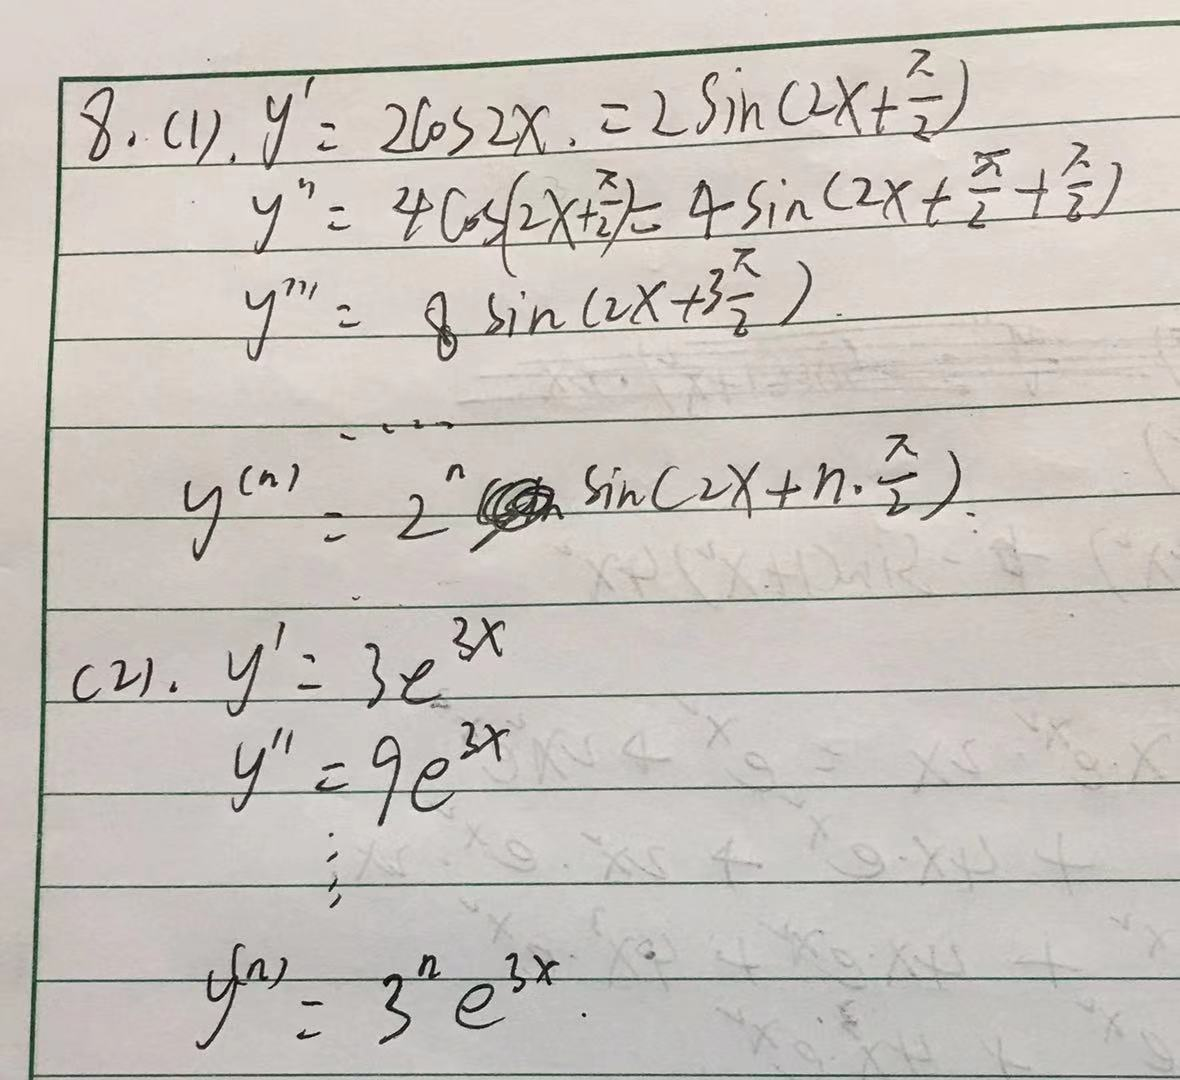 8. (1). y' = 2cos2x. = 2sin(2x+π/2)
y'' = 4cos(2x+π/2) = 4sin(2x+π/2+π/2)
y''' = 8 sin(2x+3π/2).
.....
y^(n) = 2^n sin(2x+n·π/2).
(2). y' = 3e^3x
y'' = 9e^3x
⋮
y^(n) = 3^n e^3x.